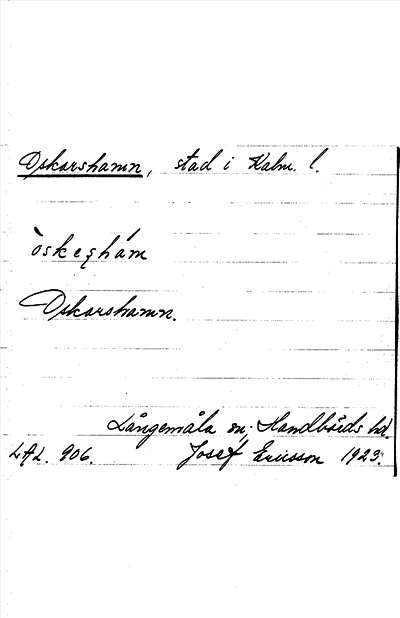 Oskarshamn, stad i Kalm. l.
òskeʂhám
Oskarshamn.
Långemåla sn; Handbörds hd.
LAL. 906. Josef Ericsson 1923.